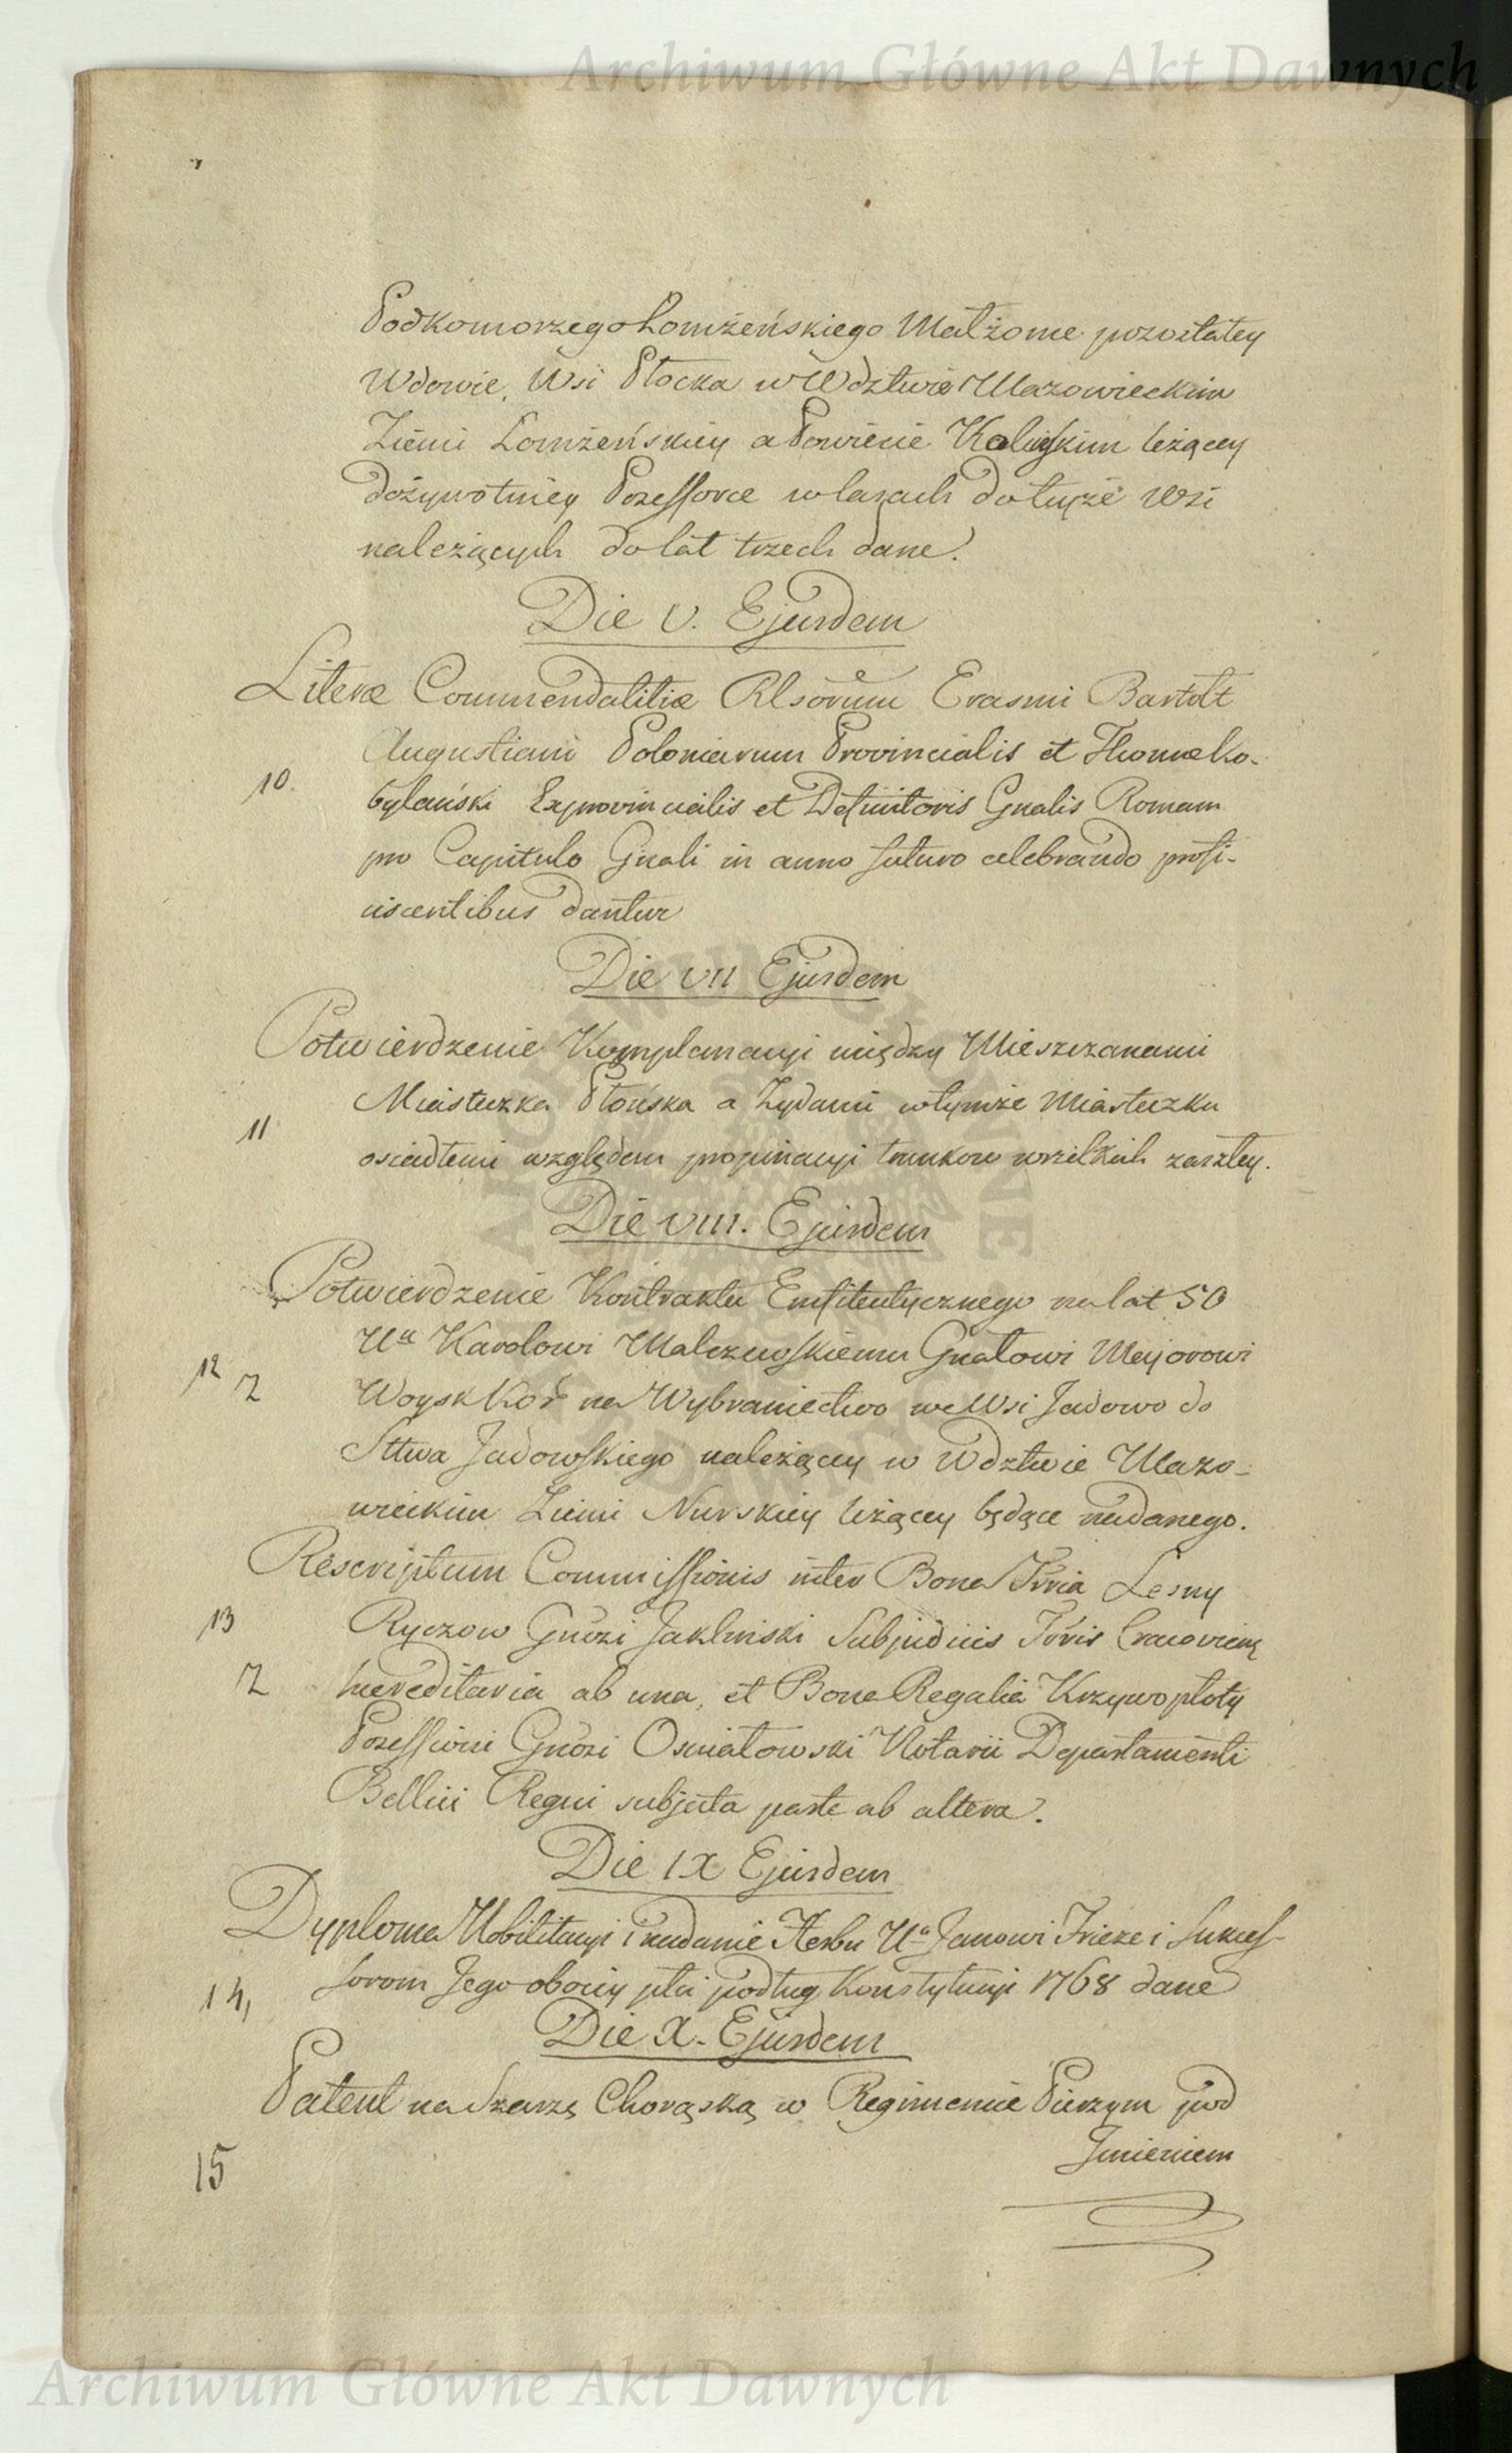 Archiwum Główne Akt Dawnych
Podkomorzego Łomżeńskiego Małżonie pozostałey
Wdowie, Wsi Płocka w Wdztwie Mazowieckim
Ziemi Łomżeńskiey a Powiecie Koleyskim leżącey
dożywotniey Posessorce w lasach do tuyże Wsi
należących do lat trzech dane.
Die V. Ejusdem
Literæ Commendatitiæ Rlsorum Erasmi Bartolt
Augustiani Poloniarum Provincialis et Thomæ Ko-
10. bylański Exprovincialis et Definitoris Gnalis Romam
pro Capitulo Gnali in anno futuro celebrando profi-
ciscentibus dantur
Die VII Ejusdem
Potwierdzenie Komplanacyi między Mieszczanami
Miasteczka Płońska a Żydami w tymże Miasteczku
11 osiadłemi względem propinacyi trunkow wszelkich zaszłey.
Die VIII. Ejusdem
Potwierdzenie Kontraktu Emfiteutycznego na lat 50
Uu Karolowi Malczewskiemu Gnałowi Majorowi
12 Z Woysk Kor na Wybraniectwo we Wsi Jadowo do
Sttwa Jadowskiego należącey w Wdztwie Mazo-
wieckim Ziemi Nurskiey leżącey będące nadanego.
Rescriptum Commissionis inter Bona Trria Lesny
13 Ryczow Gnosi Jaklinski Subjudicis Trris Cracoviens
Z haereditaria ab una, et Bona Regalia Krzywopłoty
Possessioni Gnosi Osmiatowski Notarii Departamenti
Bellici Regni subjecta parte ab altera.
Die IX Ejusdem
Dyploma Nobilitacyi i nadanie Herbu Uu Janowi Frieze i Sukces-
14, sorom Jego oboiey płci podług Konstytucyi 1768 dane
Die X. Ejusdem
Patent na Szarżę Chorąską w Regimencie Pieszym pod
15 Jmieniem
Archiwum Główne Akt Dawnych